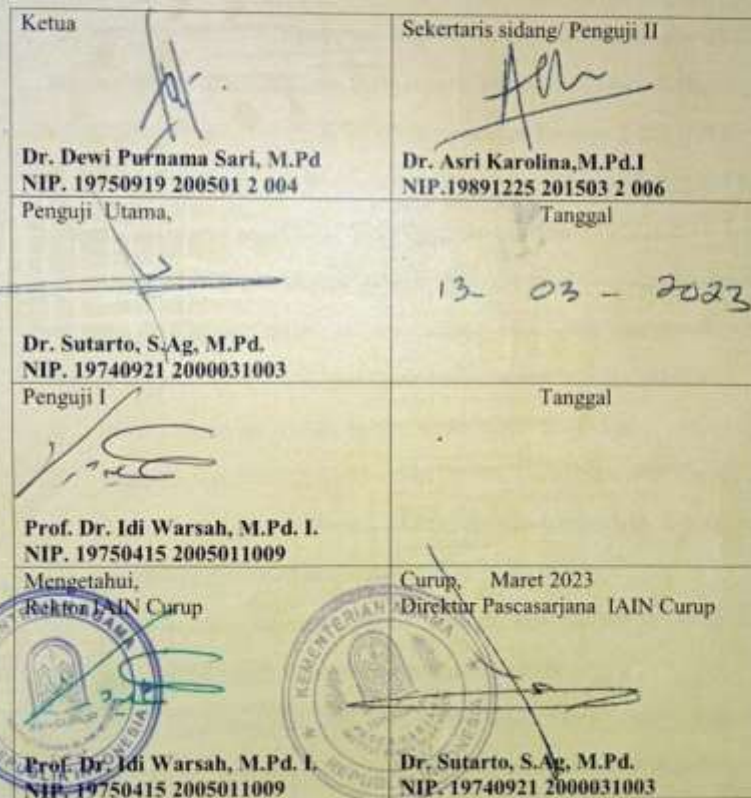 Ketua
Dr. Dewi Purnama Sari, M.Pd
NIP. 19750919 200501 2 004
Sekertaris sidang/ Penguji II
Dr. Asri Karolina,M.Pd.I
NIP.19891225 201503 2 006
Penguji Utama,
Dr. Sutarto, S.Ag, M.Pd.
NIP. 19740921 2000031003
Tanggal
13- 03 - 2023
Penguji I
Prof. Dr. Idi Warsah, M.Pd. I.
NIP. 19750415 2005011009
Tanggal
Mengetahui,
Rektor IAIN Curup
Prof. Dr. Idi Warsah, M.Pd. I.
NIP. 19750415 2005011009
Curup, Maret 2023
Direktur Pascasarjana IAIN Curup
KEMENTERIAN AGAMA
Dr. Sutarto, S.Ag, M.Pd.
NIP. 19740921 2000031003